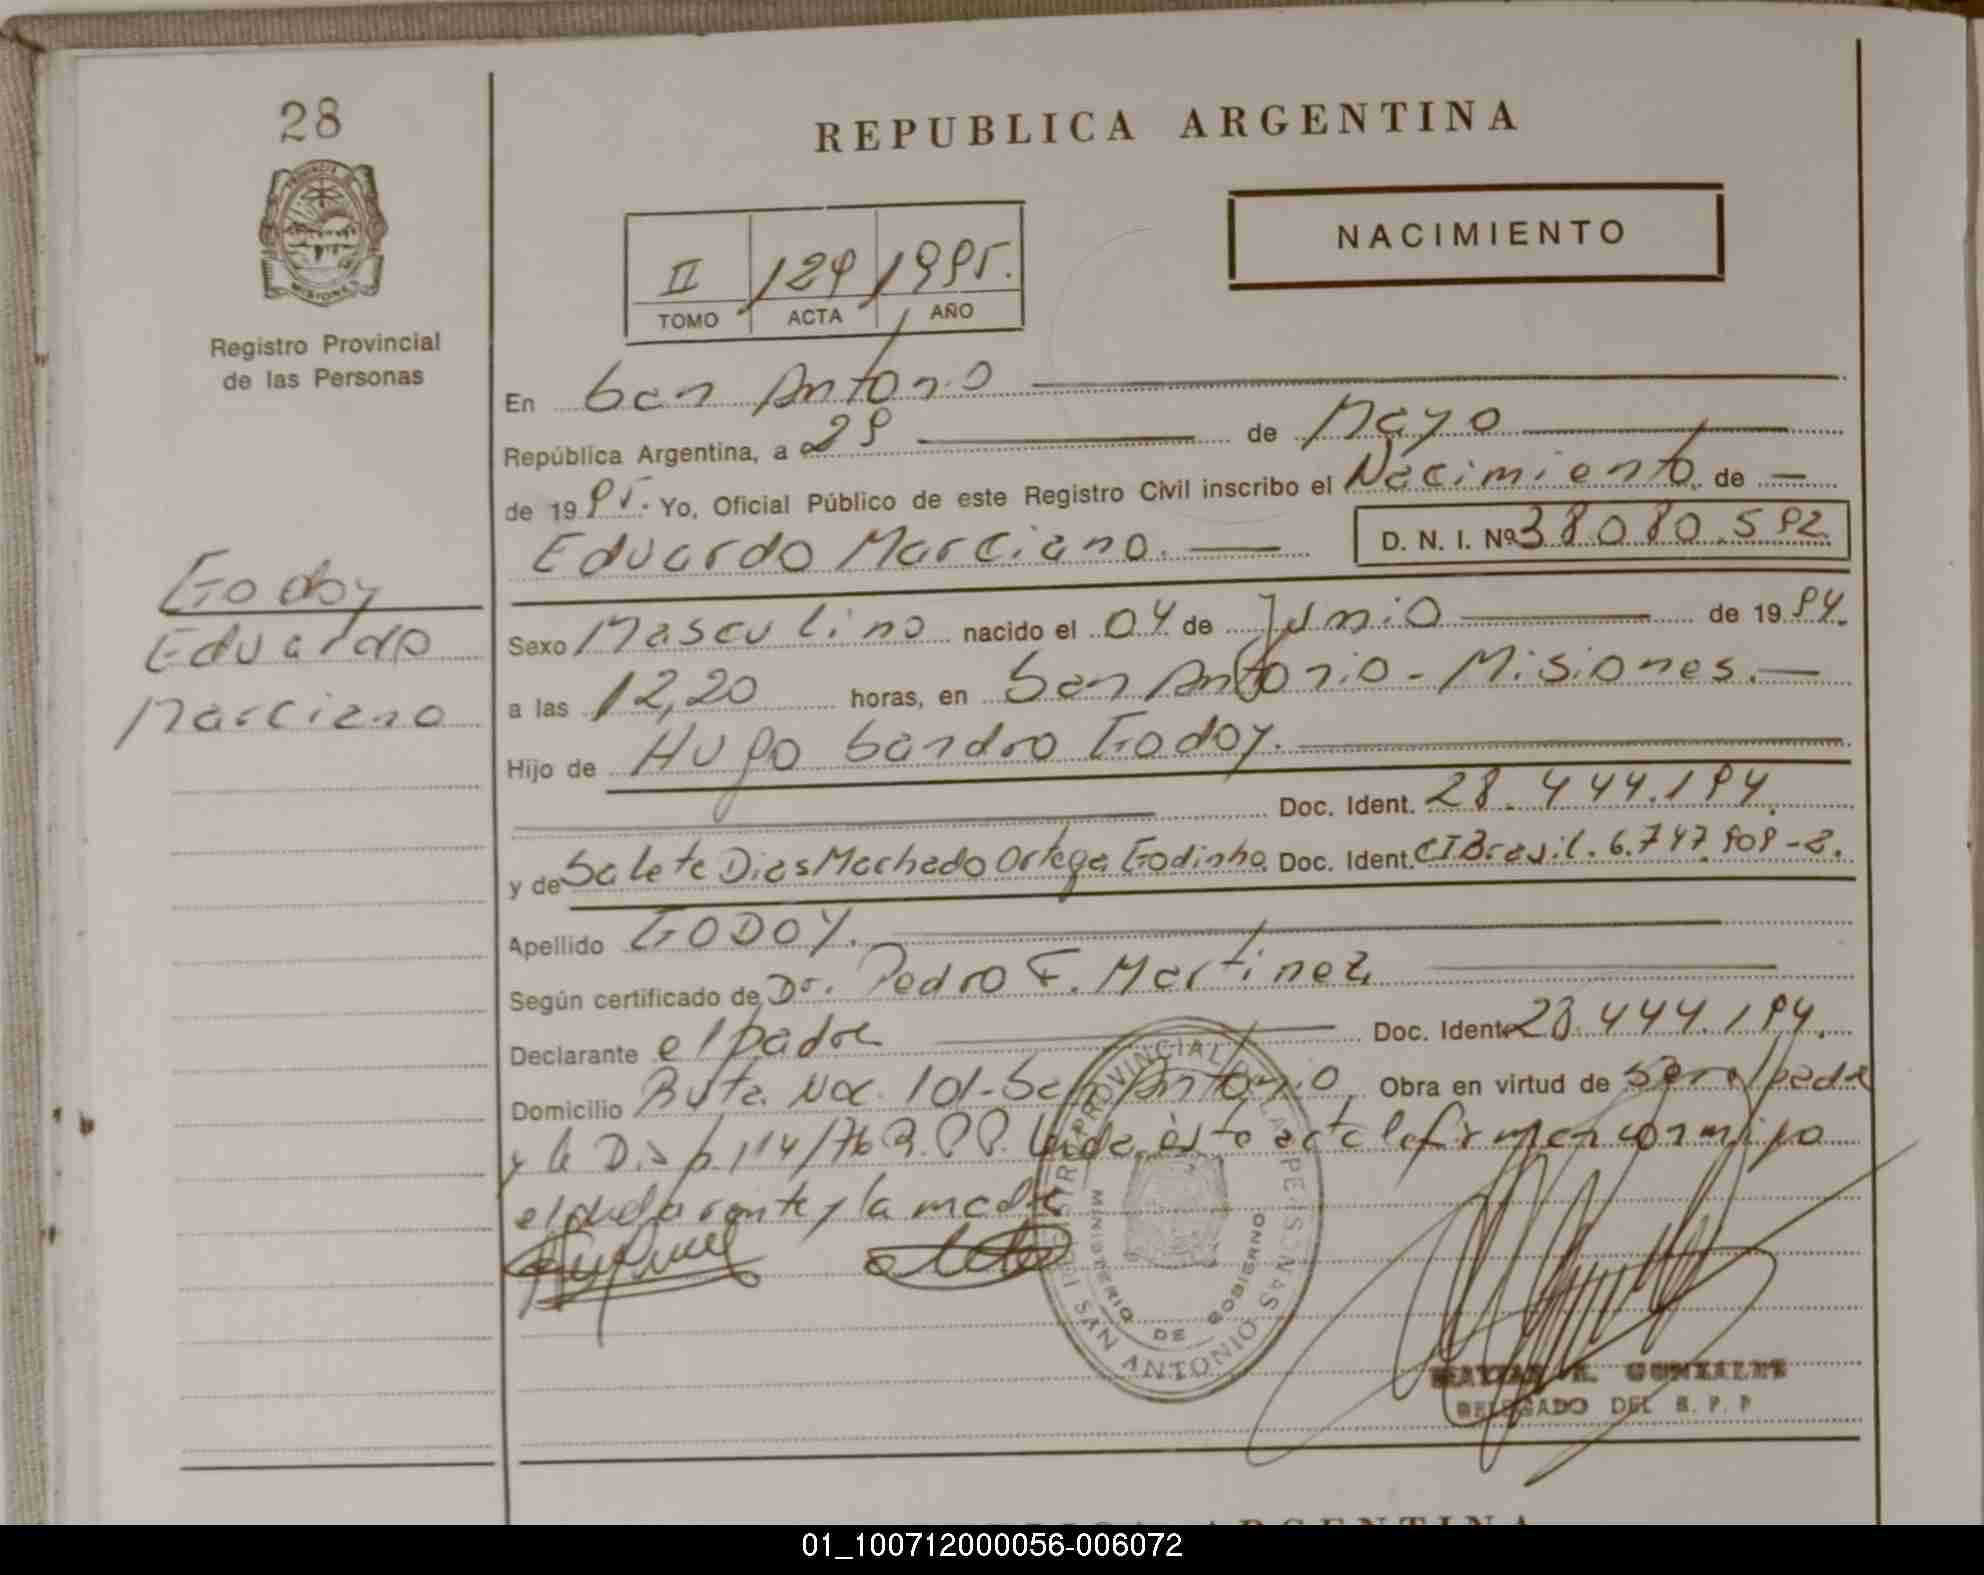 28
REPUBLICA ARGENTINA
PROVINCIA DE
MISIONES
Registro Provincial
de las Personas
NACIMIENTO
II 129 1995.
TOMO ACTA AÑO
En San Antonio
República Argentina, a 29 de Mayo
de 1995. Yo, Oficial Público de este Registro Civil inscribo el Nacimiento de —
Eduardo Marciano. — D. N. I. Nº 38080.592
Godoy
Eduardo
Marciano
Sexo Masculino nacido el 04 de Junio de 1994.
a las 12,20 horas, en San Antonio - Misiones. —
Hijo de Hugo Sandro Godoy.
Doc. Ident. 28.444.194.
y de Salete Dias Machado Ortega Godinho Doc. Ident. CI Brasil. 6.747.909-8.
Apellido GODOY.
Según certificado de Dr. Pedro F. Martinez
Declarante el padre Doc. Ident. 28.444.194.
Domicilio Ruta Nac. 101 - San Antonio Obra en virtud de ser el padre
y la Disp. 114/76 R.P.P. Leida ésta acta la firman conmigo
el declarante y la madre
REGISTRO PROVINCIAL DE LAS PERSONAS
MINISTERIO DE GOBIERNO
SAN ANTONIO
GONZALEZ
DELEGADO DEL R. P. P
REPUBLICA ARGENTINA
01_100712000056-006072